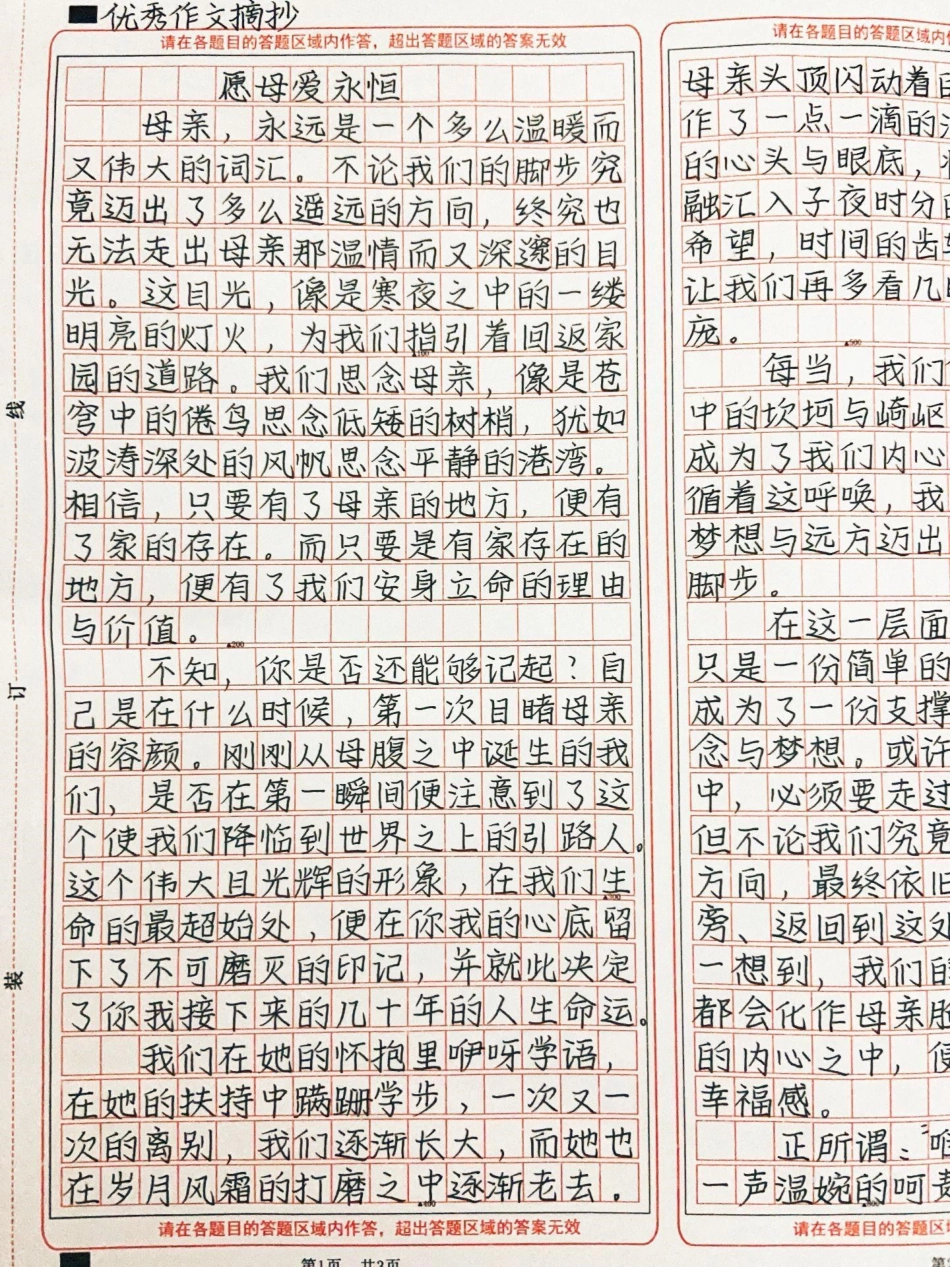 优秀作文摘抄
请在各题目的答题区域内作答，超出答题区域的答案无效
愿母爱永恒
母亲，永远是一个多么温暖而
又伟大的词汇。不论我们的脚步究
竟迈出了多么遥远的方向，终究也
无法走出母亲那温情而又深邃的目
光。这目光，像是寒夜之中的一缕
明亮的灯火，为我们指引着回返家
园的道路。我们思念母亲，像是苍
穹中的倦鸟思念低矮的树梢，犹如
波涛深处的风帆思念平静的港湾。
相信，只要有了母亲的地方，便有
了家的存在。而只要是有家存在的
地方，便有了我们安身立命的理由
与价值。
不知，你是否还能够记起？自
己是在什么时候，第一次目睹母亲
的容颜。刚刚从母腹之中诞生的我
们、是否在第一瞬间便注意到了这
个使我们降临到世界之上的引路人。
这个伟大且光辉的形象，在我们生
命的最超始处，便在你我的心底留
下了不可磨灭的印记，并就此决定
了你我接下来的几十年的人生命运。
我们在她的怀抱里咿呀学语，
在她的扶持中蹒跚学步，一次又一
次的离别，我们逐渐长大，而她也
在岁月风霜的打磨之中逐渐老去。
请在各题目的答题区域内作答，超出答题区域的答案无效
第1页 共2页
线
订
装
请在各题目的答题区域内
母亲头顶闪动着
作了一点一滴的
的心头与眼底，
融汇入子夜时分
希望，时间的齿
让我们再多看几
庞。
每当，我们
中的坎坷与崎岖
成为了我们内心
循着这呼唤，我
梦想与远方迈出
脚步。
在这一层面
只是一份简单的
成为了一份支撑
念与梦想。或许
中，必须要走过
但不论我们究竟
方向，最终依旧
旁、返回到这处
一想到，我们的
都会化作母亲
的内心之中，便
幸福感。
正所谓：
一声温婉的呵
请在各题目的答题区
第